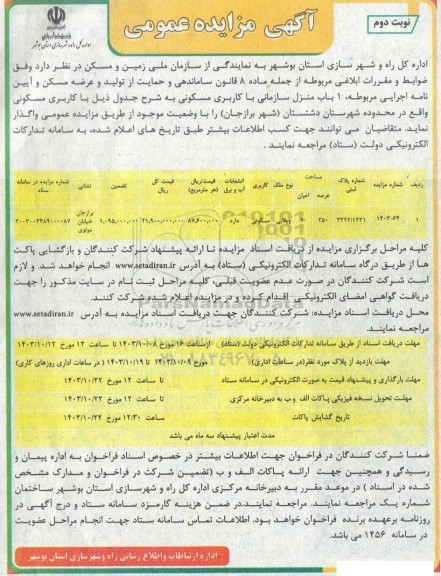 نوبت دوم
آگهی مزایده عمومی
اداره کل راه و شهرسازی استان بوشهر
اداره کل راه و شهر سازی استان بوشهر به نمایندگی از سازمان ملی زمین و مسکن در نظر دارد وفق
ضوابط و مقررات ابلاغی مربوطه از جمله ماده ۸ قانون ساماندهی و حمایت از تولید و عرضه مسکن و آیین
نامه اجرایی مربوطه، ۱ باب منزل سازمانی با کاربری مسکونی به شرح جدول ذیل با کاربری مسکونی
واقع در محدوده شهرستان دشتستان (شهر برازجان) را با وضعیت موجود از طریق مزایده عمومی واگذار
نماید. متقاضیان می توانند جهت کسب اطلاعات بیشتر طبق تاریخ های اعلام شده، به سامانه تدارکات
الکترونیکی دولت (ستاد) مراجعه نمایند.
ردیف شماره مزایده شماره پلاک ثبتی مساحت عرصه اعیان نوع ملک کاربری انشعابات آب و برق قیمت/ریال (هر مترمربع) قیمت کل ریال تضمین نشانی شماره مزایده در سامانه ستاد
۱ ۱۴۰۳-۶۴ ۳۳۲۲/۱۲۲۱ ۲۵۰ مسکونی دارد ۸۷,۶۰۰,۰۰۰ ۲۱,۹۰۰,۰۰۰,۰۰۰ ۱,۰۹۵,۰۰۰,۰۰۰ برازجان خیابان مولوی
کلیه مراحل برگزاری مزایده از دریافت اسناد مزایده تا ارائه پیشنهاد شرکت کنندگان و بازگشایی پاکت
ها از طریق درگاه سامانه تدارکات الکترونیکی (ستاد) به آدرس www.setadiran.ir انجام خواهد شد. و لازم
است شرکت کنندگان در صورت عدم عضویت قبلی، کلیه مراحل ثبت نام در سایت مذکور را جهت
دریافت گواهی امضای الکترونیکی اقدام کرده و در مزایده اعلام شده شرکت کنند.
محل دریافت اسناد مزایده: شرکت کنندگان جهت دریافت اسناد مزایده به آدرس www.setadiran.ir
مراجعه نمایند.
مهلت دریافت اسناد از طریق سامانه تدارکات الکترونیکی دولت (ستاد) از ساعت ۱۶ مورخ ۱۴۰۳/۱۰/۰۸ تا ساعت ۱۲ مورخ ۱۴۰۳/۱۰/۱۲
مهلت بازدید از پلاک مورد نظر (در ساعات اداری) از مورخ ۱۴۰۳/۱۰/۰۹ تا ۱۴۰۳/۱۰/۱۹ (در ساعات اداری روزهای کاری)
مهلت بارگذاری و پیشنهاد قیمت به صورت الکترونیکی در سامانه ستاد تا ساعت ۱۲ مورخ ۱۴۰۳/۱۰/۲۲
مهلت تحویل نسخه فیزیکی پاکات الف و ب به دبیرخانه مرکزی تا ساعت ۱۲ مورخ ۱۴۰۳/۱۰/۲۲
تاریخ گشایش پاکات ساعت ۱۲:۳۰ مورخ ۱۴۰۳/۱۰/۲۲
مدت اعتبار پیشنهاد سه ماه می باشد
ضمنا شرکت کنندگان در فراخوان جهت اطلاعات بیشتر در خصوص اسناد فراخوان به اداره پیمان و
رسیدگی و همچنین جهت ارائه پاکات الف و ب (تضمین شرکت در فراخوان و مدارک مشخص
شده در اسناد) در موعد مقرر به دبیرخانه مرکزی اداره کل راه و شهرسازی استان بوشهر ساختمان
شماره یک مراجعه نمایند. مراجعه نمایند.در ضمن هزینه کارمزد سامانه ستاد و درج آگهی در
روزنامه برعهده برنده فراخوان خواهد بود. اطلاعات تماس سامانه ستاد جهت انجام مراحل عضویت
در سامانه ۱۴۵۶ می باشد.
اداره ارتباطات واطلاع رسانی راه وشهرسازی استان بوشهر